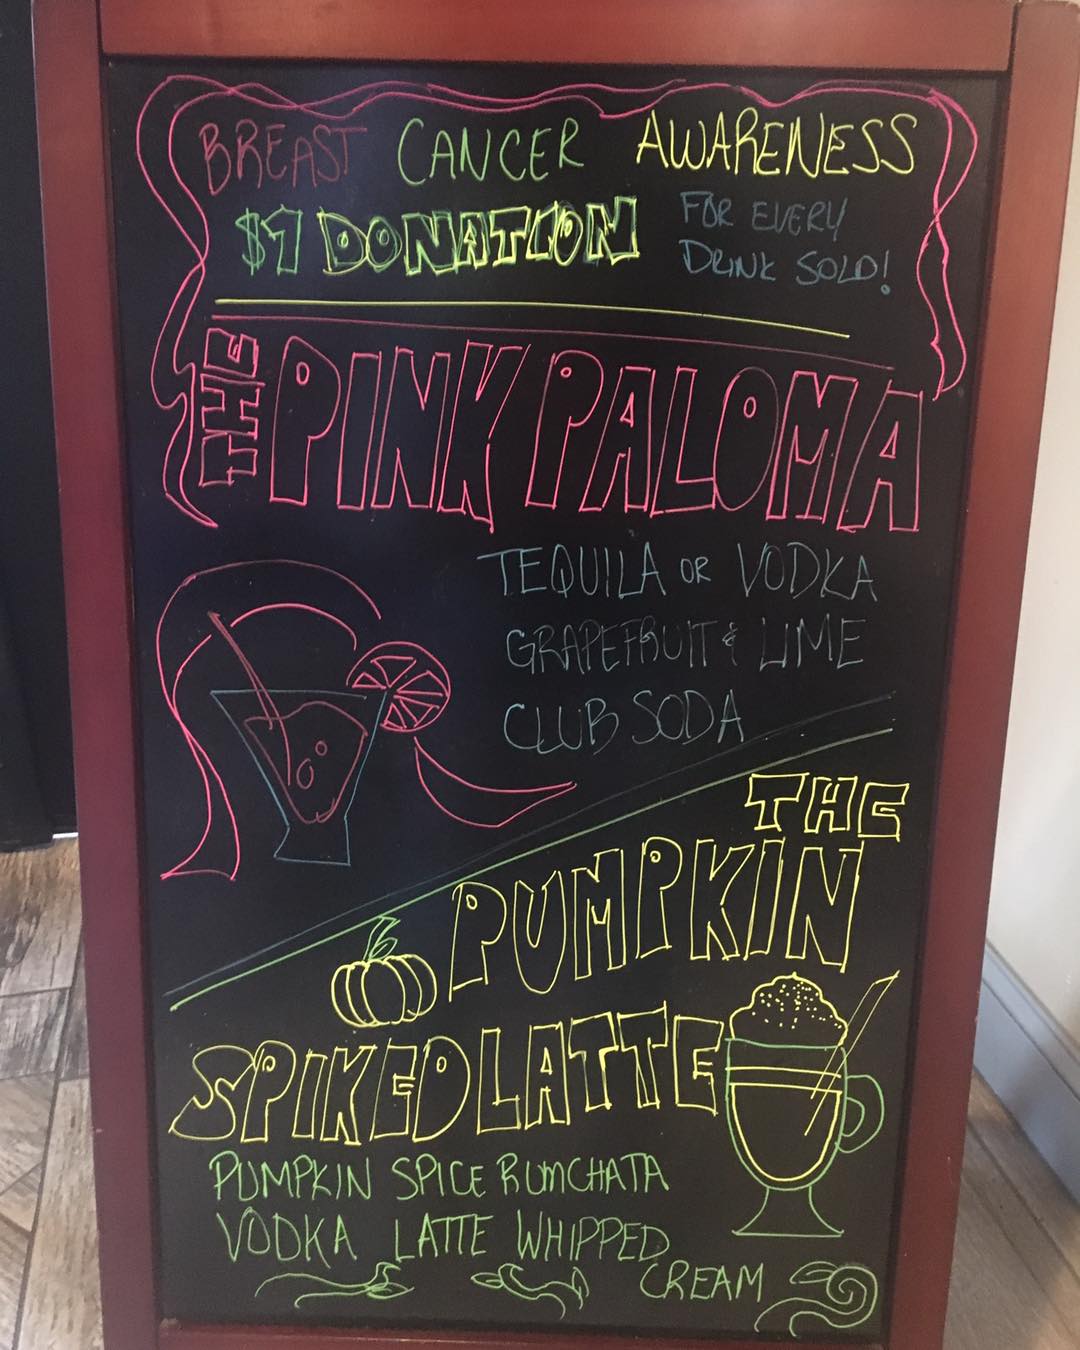 BREAST CANCER AWARENESS
$1 DONATION FOR EVERY
DRINK SOLD!
THE PINK PALOMA
TEQUILA OR VODKA
GRAPEFRUIT & LIME
CLUB SODA
THE
PUMPKIN
SPIKED LATTE
PUMPKIN SPICE RUMCHATA
VODKA LATTE WHIPPED
CREAM